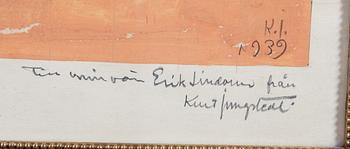 K.J.
1939
Till min vän Erik Lindorm från
Kurt Jungstedt.